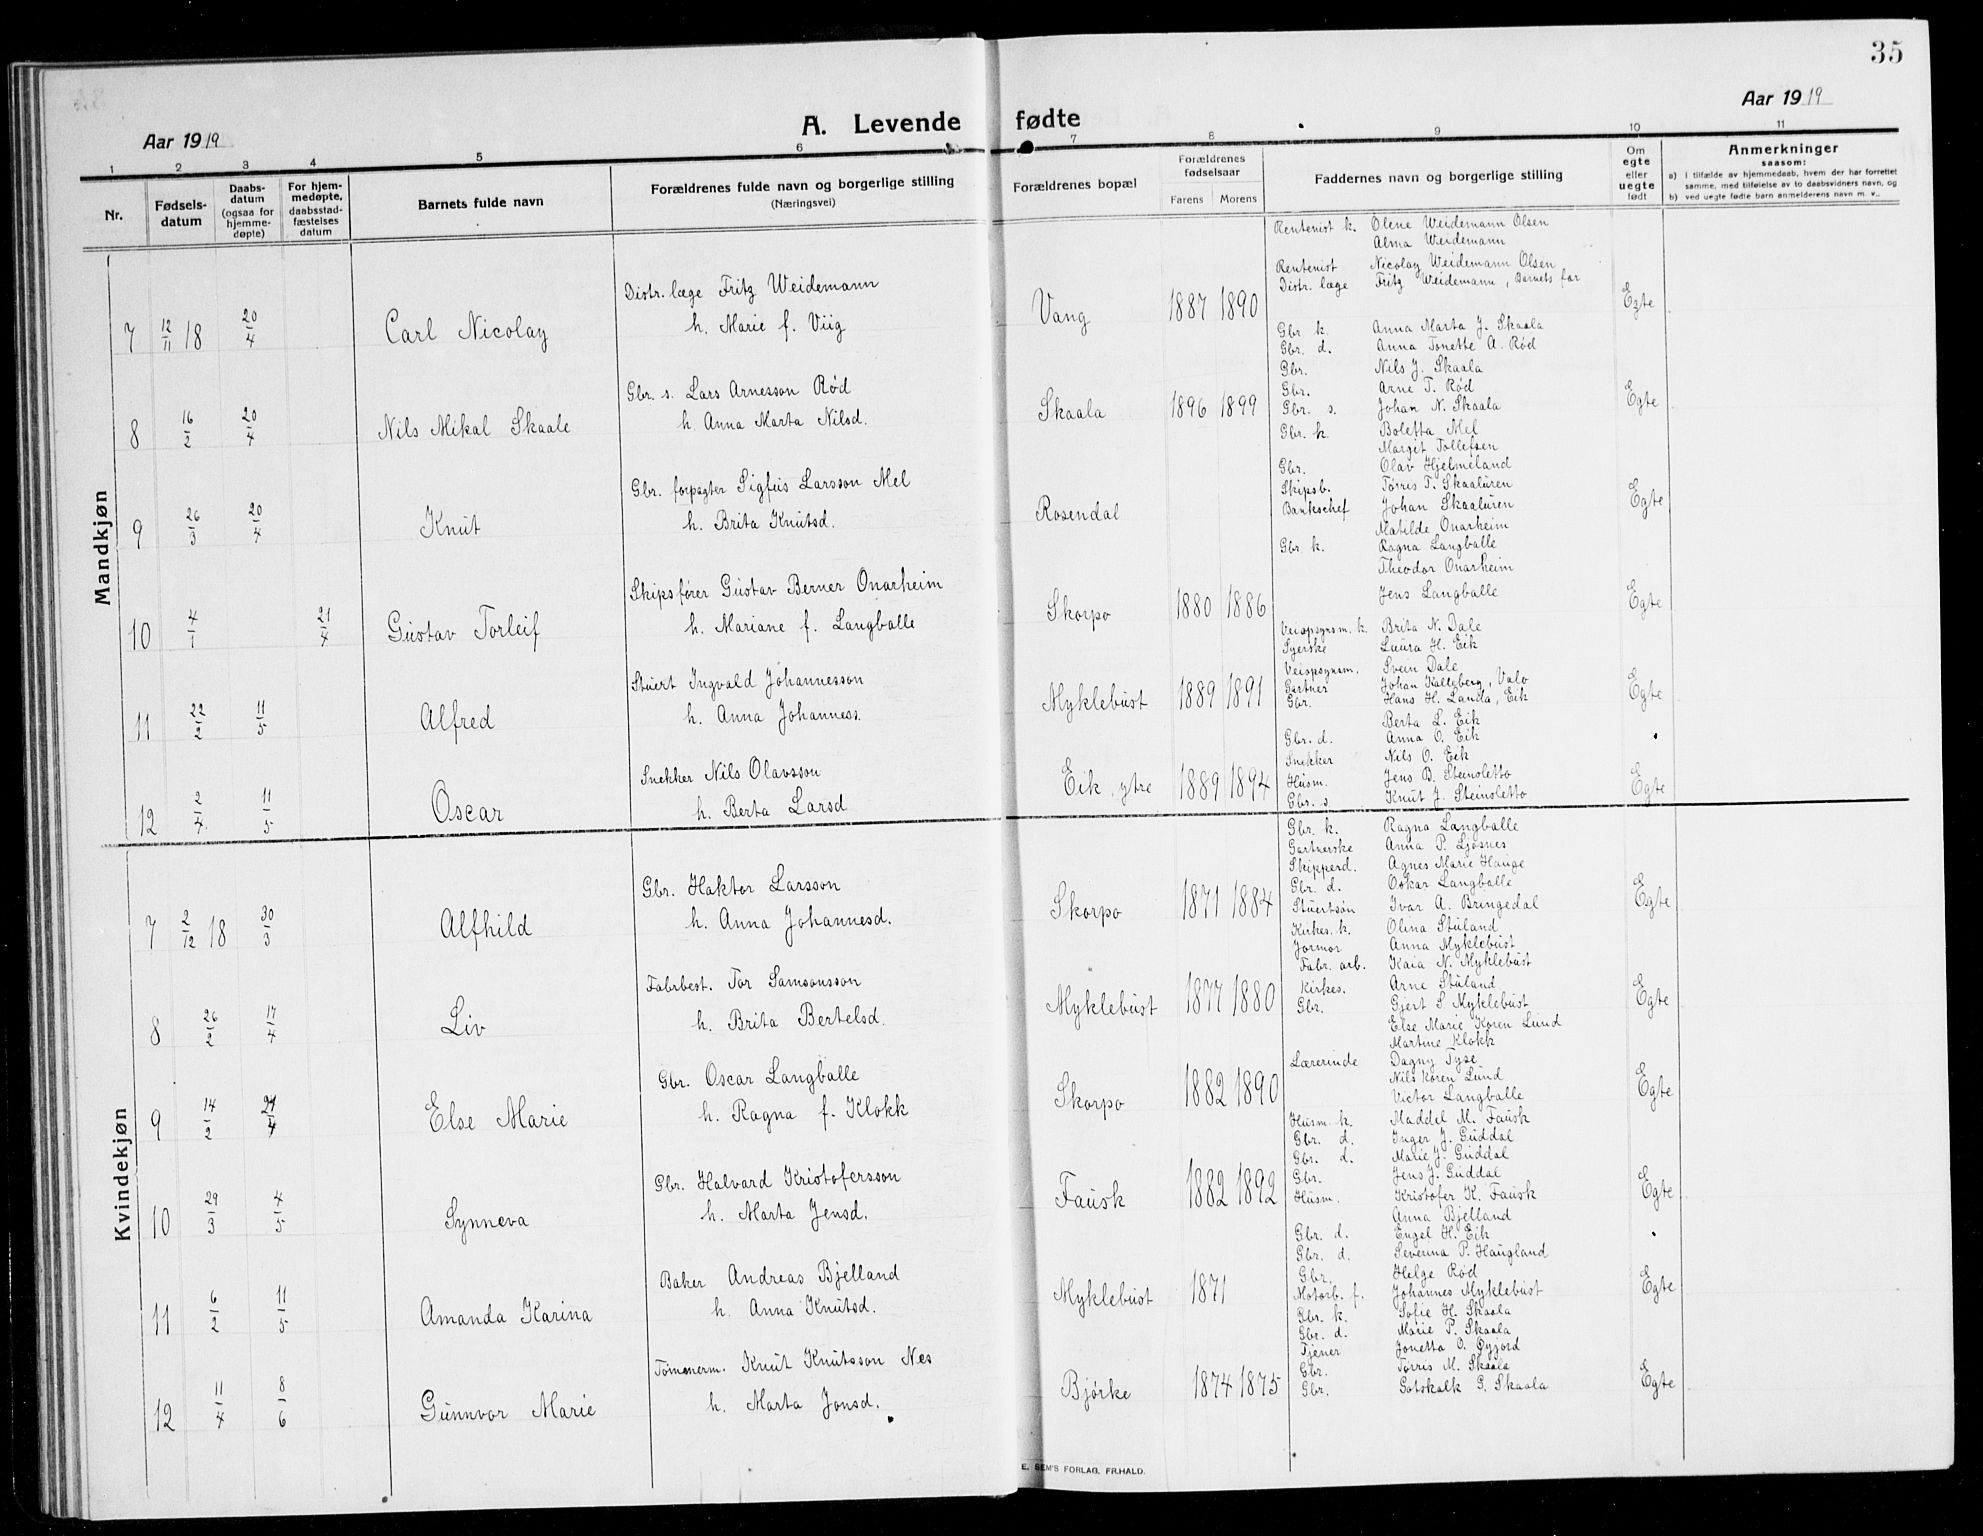 35
Aar 1919
A. Levende fødte
Aar 1919
1 2 3 4 5 6 7 8 9 10 11
Nr.
Fødsels-
datum
Daabs-
datum
(ogsaa for
hjemme-
døpte)
For hjem-
medøpte,
daabsstad-
fæstelses
datum
Barnets fulde navn
Forældrenes fulde navn og borgerlige stilling
(Næringsvei)
Forældrenes bopæl
Forældrenes
fødselsaar
Farens Morens
Faddernes navn og borgerlige stilling
Om
egte
eller
uegte
født
Anmerkninger
saasom:
a) I tilfælde av hjemmedaab, hvem der har forrettet
samme, med tilføielse av to daabsvidners navn, og
b) ved uegte fødte børn anmelderens navn m. v.
Mandkjøn
7 12/11 18 20/4 Carl Nicolay
Distr. læge Fritz Weidemann
h. Marie f. Viig
Vang 1887 1890 Egte
Rentenist k. Olene Weidemann Olsen
Alma Weidemann
Rentenist Nicolay Weidemann Olsen
Distr. læge Fritz Weidemann, Barnets far
8 16/2 20/4 Nils Mikal Skaale
Gbr. s. Lars Arnesson Rød
h. Anna Marta Nilsd.
Skaala 1896 1899 Egte
Gbr. k. Anna Marta J. Skaala
Gbr. d. Anna Tonette A. Rød
Gbr. Nils J. Skaala
Gbr. Arne T. Rød
Gbr. s. Johan N. Skaala
9 26/3 20/4 Knut
Gbr. forpagter Sigfus Larsson Mel
h. Brita Knutsd.
Rosendal Egte
Gbr. k. Boletta Mel
Margit Tollefsen
Gbr. Olav Hjelmeland
Skipsb. Tørris T. Skaaluren
Bankschef Johan Skaaluren
10 4/1 21/4 Gustav Torleif
Skipsfører Gustav Berner Onarheim
h. Mariane f. Langballe
Skorpo 1880 1886 Egte
Matilde Onarheim
Gbr. k. Ragna Langballe
Theodor Onarheim
Jens Langballe
11 22/2 11/5 Alfred
Stuert Ingvald Johannesson
h. Anna Johanness.
Myklebust 1889 1891 Egte
Veiopsynsm. k. Brita N. Dale
Syerske Laura H. Eik
Veiopsynsm. Svein Dale
Gartner Johan Kalleberg, Valo
Gbr. Hans H. Landa, Eik
12 2/4 11/5 Oscar
Snekker Nils Olavsson
h. Berta Larsd
Eik, ytre 1889 1894 Egte
Berta L. Eik
Gbr. d. Anna O. Eik
Snekker Nils O. Eik
Husm. Jens B. Steinsletto
Gbr. s. Knut J. Steinsletto
Kvindekjøn
7 2/12 18 30/3 Alfhild
Gbr. Haktor Larsson
h. Anna Johannesd.
Skorpo 1871 1884 Egte
Gbr. k. Ragna Langballe
Gartnerske Anna P. Ljosnes
Skipperd. Agnes Marie Hauge
Gbr. d. Oskar Langballe
Stuertsøn Ivar A. Bringedal
8 26/2 17/4 Liv
Fabrbest. Tor Samsonsson
h. Brita Bertelsd.
Myklebust 1877 1880 Egte
Kirkes. k. Olina Støland
Jormor Anna Myklebust
Fabr. arb. Kaia N. Myklebust
Kirkes. Arne Støland
Gbr. Gjert S Myklebust
9 14/2 21/4 Else Marie
Gbr. Oscar Langballe
h. Ragna f. Klokk
Skorpo 1882 1890 Egte
Else Marie Koren Lund
Martine Klokk
Lærerinde Dagny Tyse
Nils Koren Lund
Victor Langballe
10 29/3 4/5 Synneva
Gbr. Halvard Kristofersson
h. Marta Jensd.
Fausk 1882 1892 Egte
Husm. k. Maddel M. Fausk
Gbr. d. Inger J. Guddal
Gbr. d. Marie J. Guddal
Gbr. Jens J. Guddal
Husm. Kristofer K. Fausk
11 6/2 11/5 Amanda Karina
Baker Andreas Bjelland
h. Anna Knutsd.
Myklebust 1871 Egte
Anna Bjelland
Gbr. d. Engel H. Eik
Gbr. d. Severina P. Haugland
Gbr. Helge Rød
Motorb. f. Johannes Myklebust
12 11/4 8/6 Gunnvor Marie
Tømmerm. Knut Knutsson Nes
h. Marta Jonsd.
Bjørke 1874 1875 Egte
Gbr. k. Sofie H. Skaala
Gbr. d. Marie P. Skaala
Tjener Jonetta O. Øyjord
Gbr. Tørris M. Skaala
Gbr. Gotskalk G. Skaala
E. SEM'S FORLAG, FR.HALD.